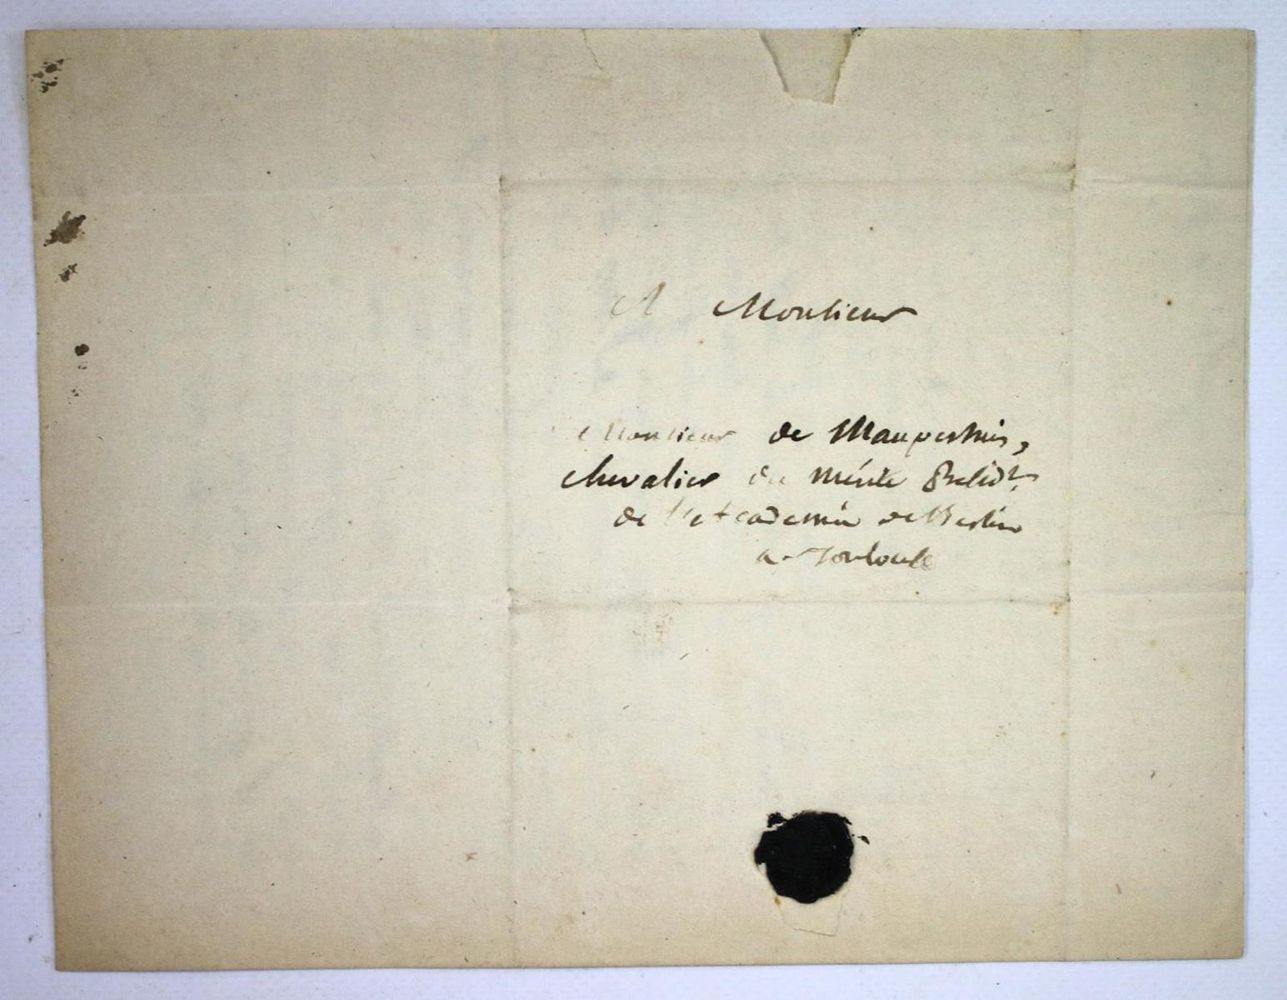 A Monsieur
Monsieur de Maupertuis,
chevalier du mérite Presidt.
de l'Academie de Berlin
a Toulouse